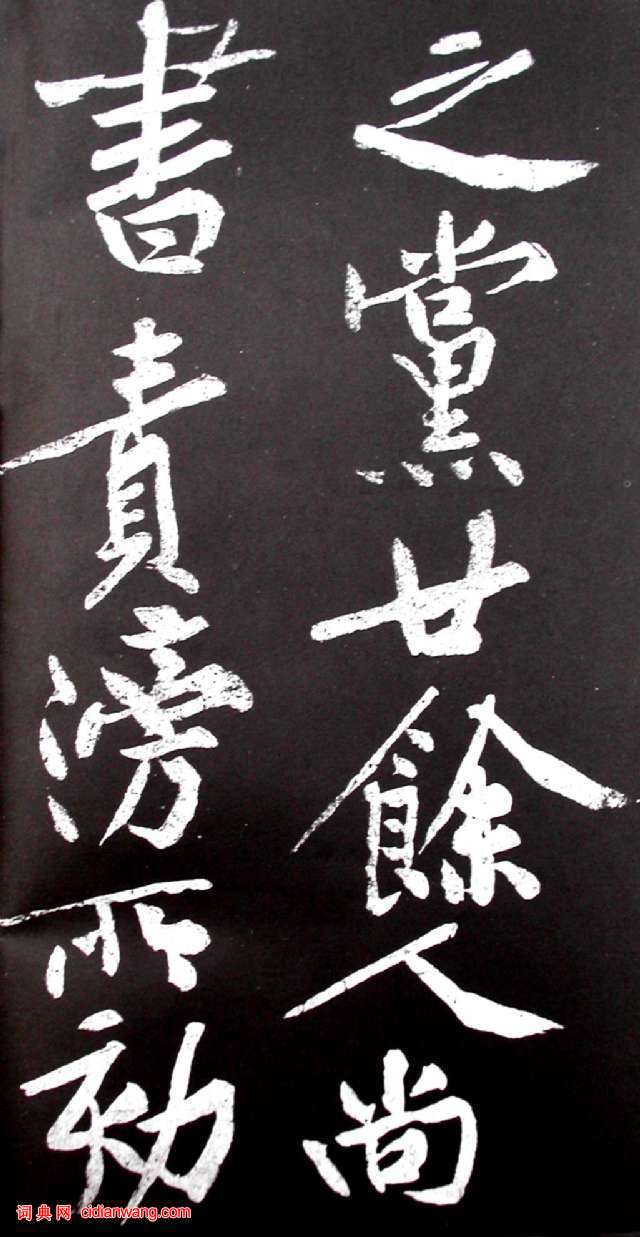 之黨廿餘人尚
書責滂所劾
词典网 cidianwang.com